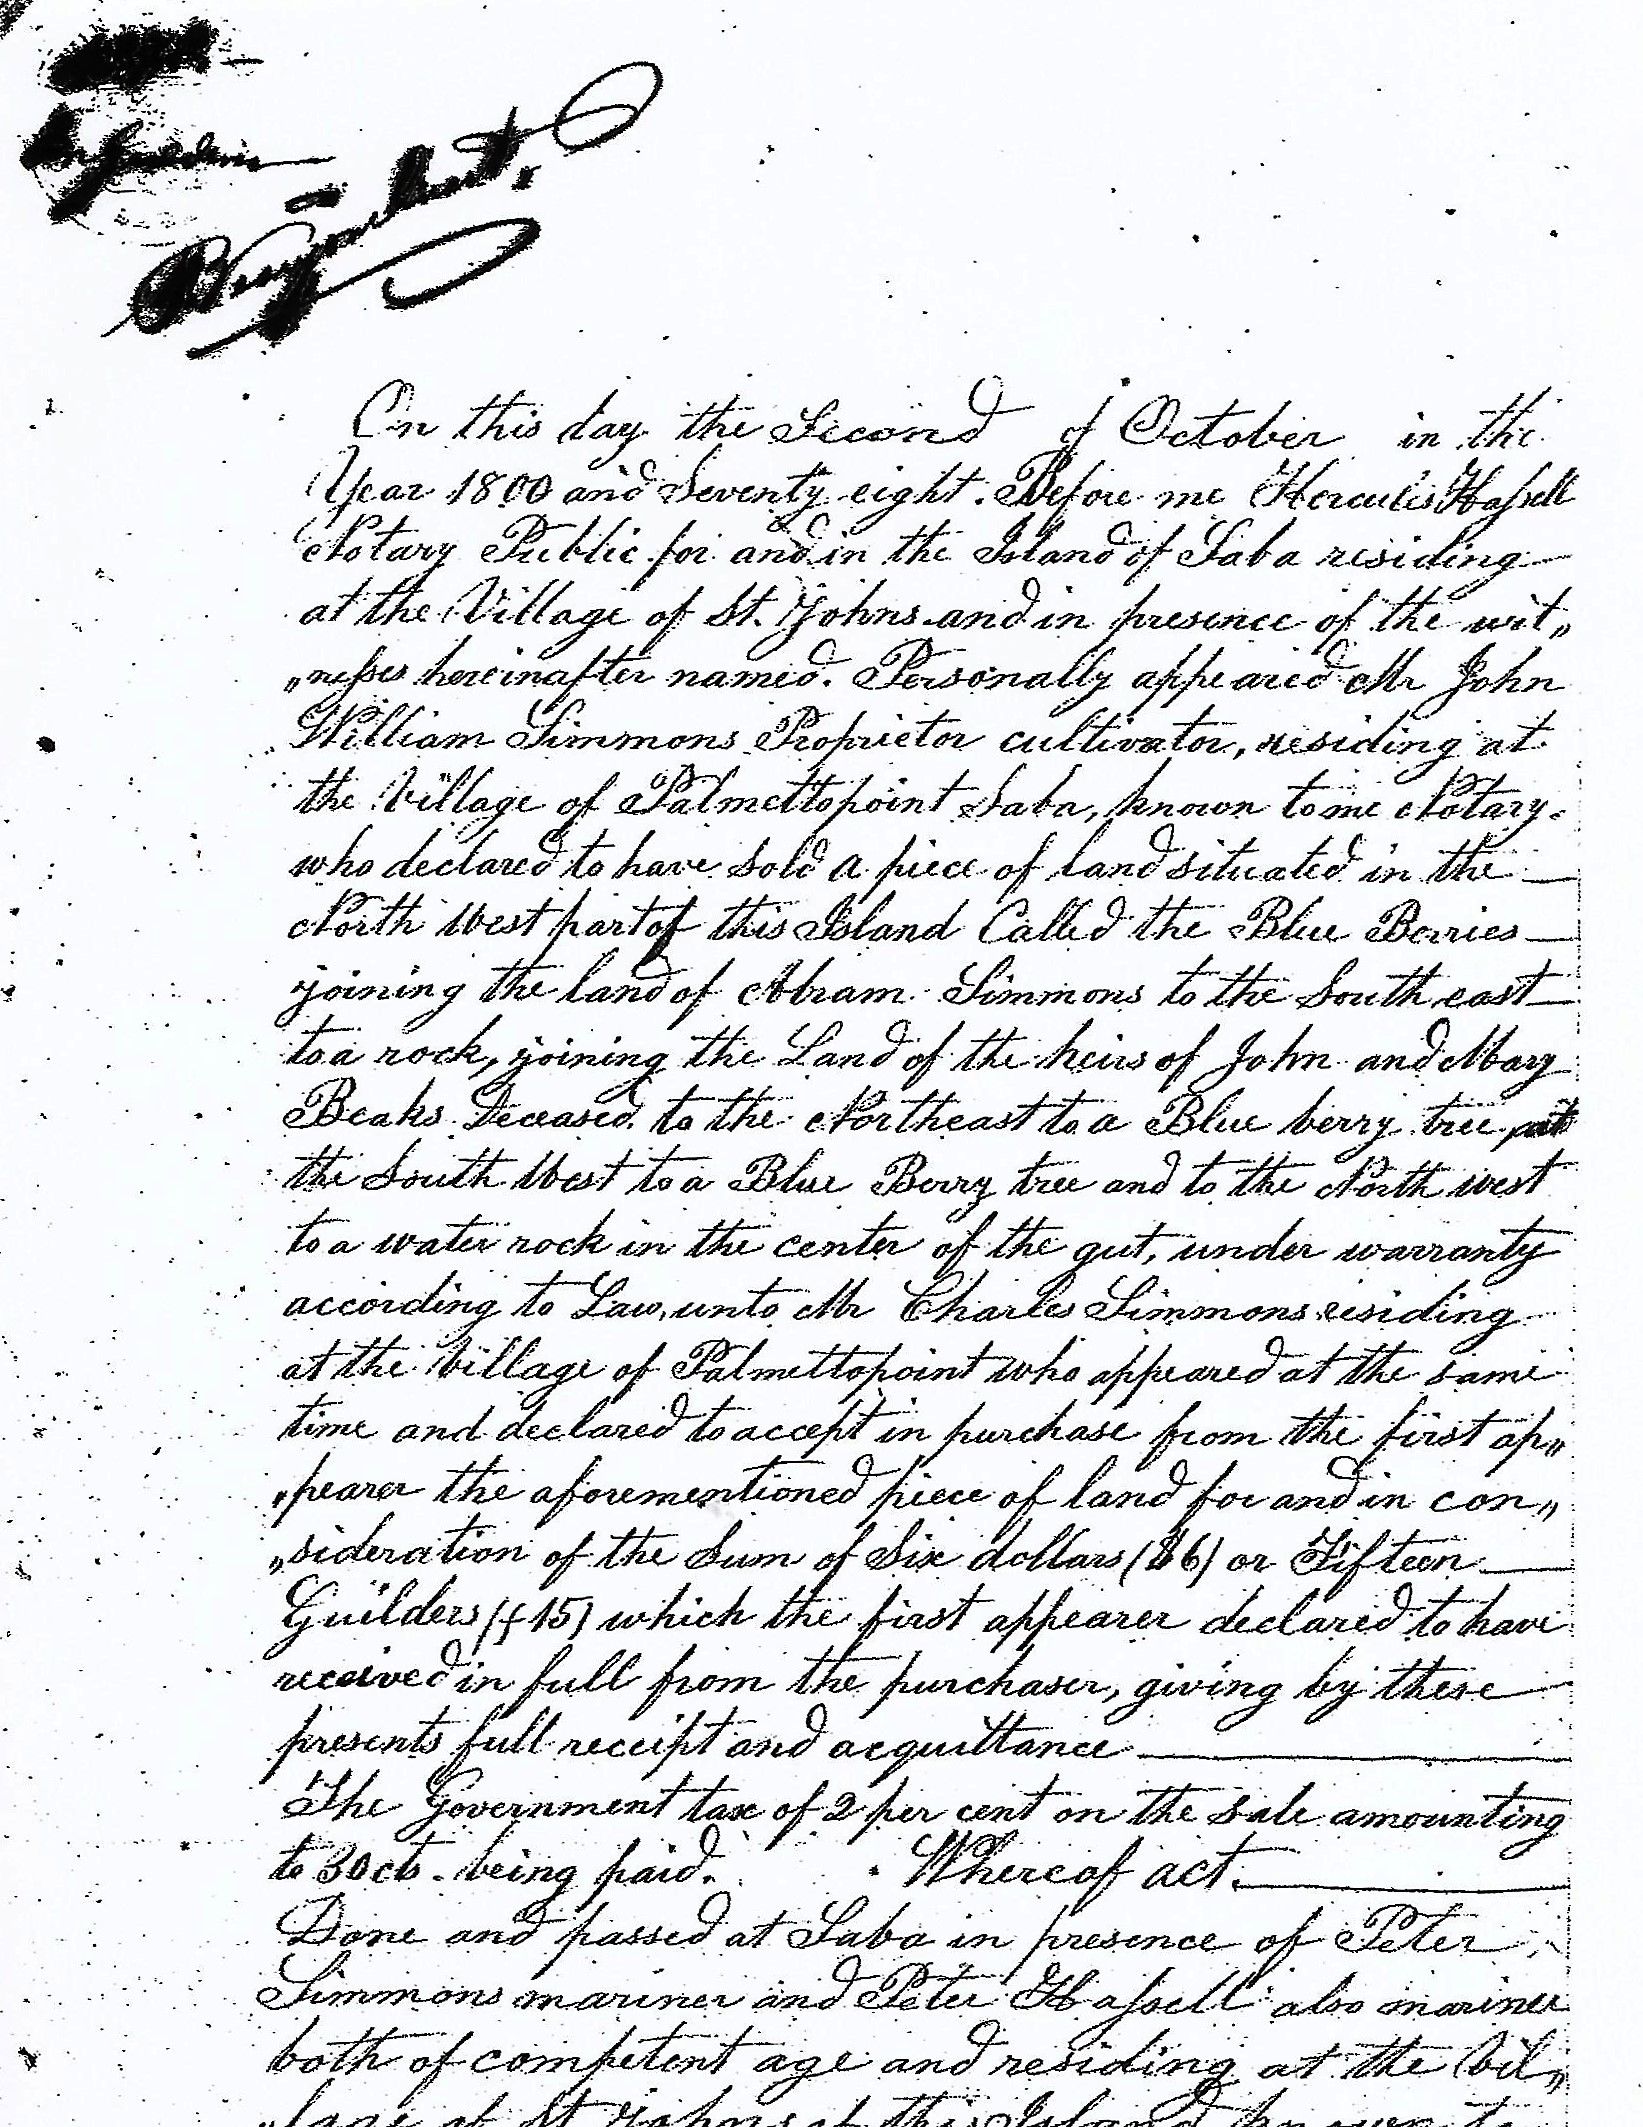 On this day the Second of October in the
Year 1800 and Seventy eight. Before me Hercules Hassell
Notary Public for and in the Island of Saba residing
at the Village of St. Johns and in presence of the wit„
„nesses hereinafter named. Personally appeared Mr John
William Simmons Proprietor cultivator, residing at
the Village of Palmettopoint Saba, known to me Notary.
who declared to have sold a piece of land situated in the
North West part of this Island Called the Blue Berries
joining the land of Abram Simmons to the South east
to a rock, joining the Land of the heirs of John and Mary
Beaks Deceased to the Northeast to a Blue berry tree, at
the South West to a Blue Berry tree and to the North west
to a water rock in the center of the gut, under warranty
according to Law, unto Mr Charles Simmons residing
at the Village of Palmettopoint who appeared at the same
time and declared to accept in purchase from the first ap„
„pearer the aforementioned piece of land for and in con„
„sideration of the Sum of Six dollars ($6) or Fifteen
Guilders (f 15) which the first appearer declared to have
received in full from the purchaser, giving by these
presents full receipt and acquittance
The Government tax of 2 per cent on the sale amounting
to 30 cts. being paid. Whereof act.
Done and passed at Saba in presence of Peter
Simmons mariner and Peter Hassell also mariner
both of competent age and residing at the Vil„
„lage of St Johns of this Island known to